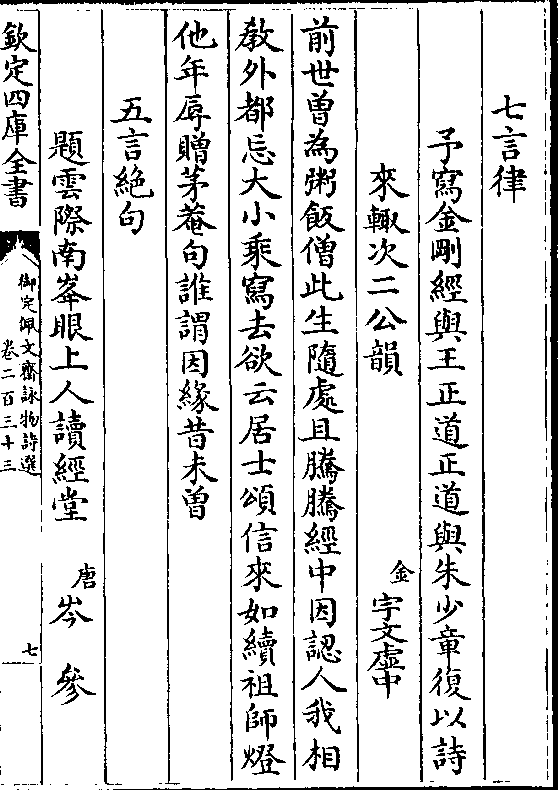 七言律
予寫金剛經與王正道正道與朱少章復以詩
來輙次二公韻
金
宇文虛中
前世曽為粥飯僧此生隨處且騰騰經中因認人我相
教外都忘大小乘寫去欲云居士頌信來如續祖師燈
他年辱贈茅菴句誰謂因緣昔未曽
五言絶句
題雲際南峯眼上人讀經堂
唐
岑參
欽定四庫全書
御定佩文齋詠物詩選
卷二百三十三
七